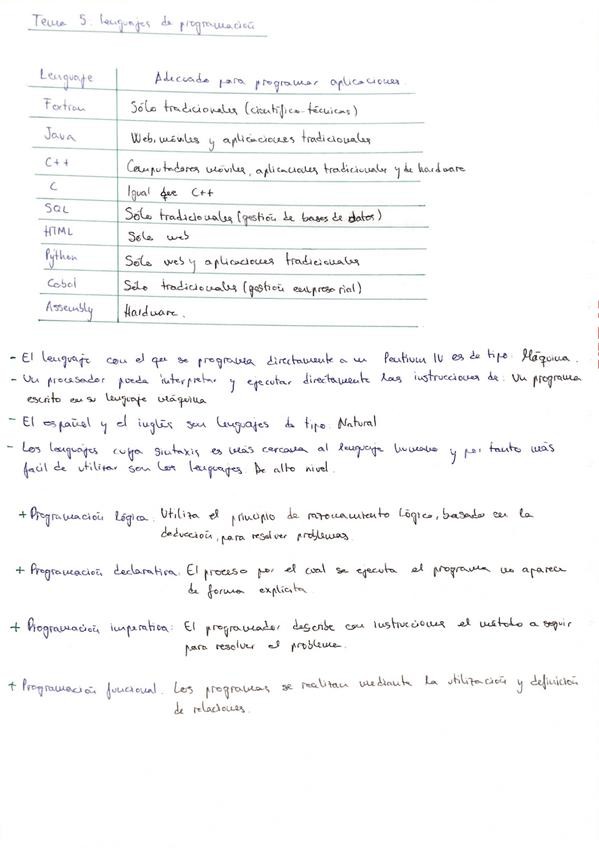 Tema 5. Lenguajes de programación
Lenguaje Adecuado para programar aplicaciones.
Fortran Sólo tradicionales (científico-técnicas)
Java Web, móviles y aplicaciones tradicionales
C++ Computadores móviles, aplicaciones tradicionales y de hardware
C Igual que C++
SQL Sólo tradicionales (gestión de bases de datos)
HTML Sólo web
Python Sólo web y aplicaciones tradicionales
Cobol Sólo tradicionales (gestión empresarial)
Assembly Hardware.
- El lenguaje con el que se programa directamente a un Pentium IV es de tipo: Máquina.
- Un procesador puede interpretar y ejecutar directamente las instrucciones de: Un programa
escrito en su lenguaje máquina
- El español y el inglés son lenguajes de tipo: Natural
- Los lenguajes cuya sintaxis es más cercana al lenguaje humano y por tanto más
facil de utilizar son los lenguajes De alto nivel.
+ Programación lógica. Utiliza el principio de razonamiento lógico, basado en la
deducción, para resolver problemas.
+ Programación declarativa: El proceso por el cual se ejecuta el programa no aparece
de forma explícita
+ Programación imperativa: El programador describe con instrucciones el método a seguir
para resolver el problema.
+ Programación funcional. Los programas se realizan mediante la utilización y definición
de relaciones.